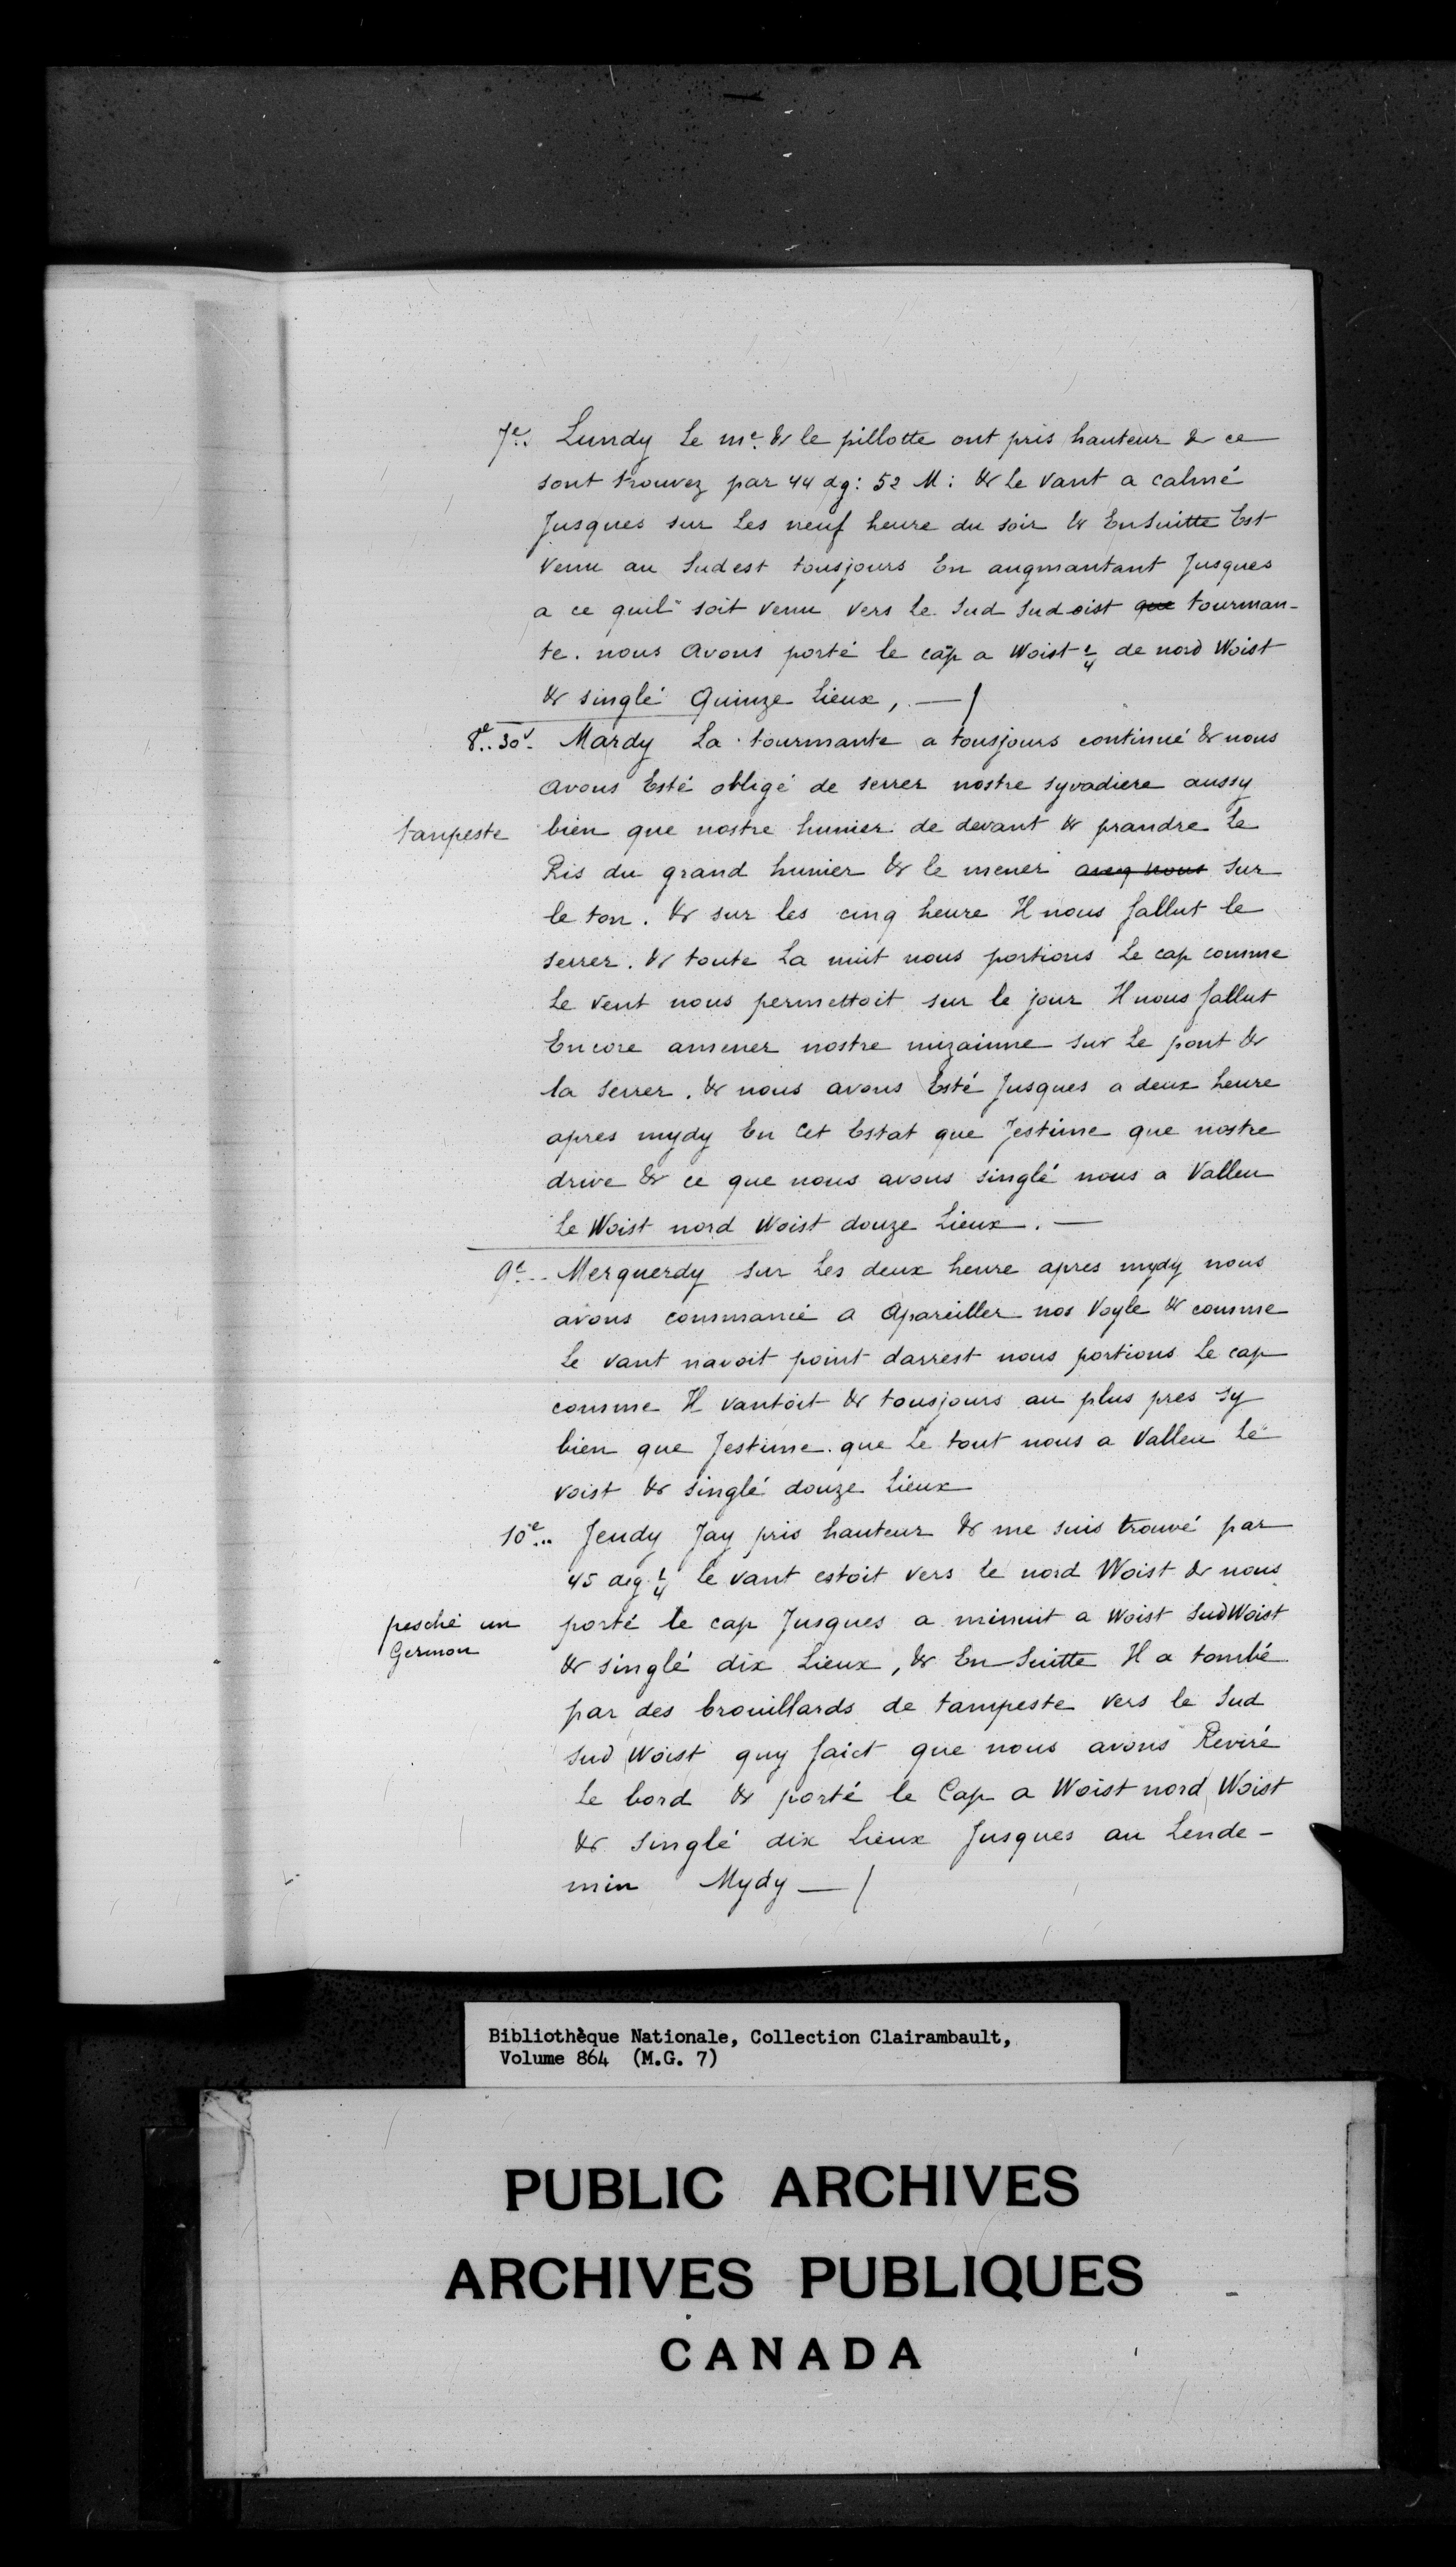 7e.. Lundy Le me. & le pillotte ont pris hauteur & ce
sont trouvez par 44 dg: 52 M: & Le vant a calmé
Jusques sur Les neuf heure du soir & Ensuitte Est
venu au Sudest tousjours En augmantant Jusques
a ce quil soit venu vers Le Sud Sudoist que tourman-
te. nous avons porté le cap a Woist 1/4 de nord Woist
& singlé Quinze Lieux, —/
8e.. 30v. Mardy La tourmante a tousjours continué & nous
avons Esté obligé de serrer nostre syvadiere aussy
tanpeste
bien que nostre hunier de devant & prandre Le
Ris du grand hunier & le mener aveq nous Sur
le ton. & sur les cinq heure Il nous fallut le
serrer. & toute La nuit nous portions Le cap comme
Le vent nous permettoit sur le jour Il nous fallut
Encore amener nostre mizainne sur Le pont &
la serrer. & nous avons Esté Jusques a deux heure
apres mydy En Cet Estat que Jestime que nostre
drive & ce que nous avons singlé nous a Valleu
Le Woist nord Woist douze Lieux. —
9e... Merquerdy sur Les deux heure apres mydy nous
avons commancé a Apareiller nos Voyle & comme
Le vant navoit point darrest nous portions Le cap
comme Il vantoit & tousjours au plus pres sy
bien que Jestime que Le tout nous a Valleu Le
voist & singlé douze Lieux
10e... Jeudy Jay pris hauteur & me suis trouvé par
45 deg 1/4 le vant estoit vers le nord Woist & nous
pesché un
Germon
porté le cap Jusques a minuit a Woist SudWoist
& singlé dix Lieux, & En Suitte Il a tombé
par des brouillards de tampeste vers le Sud
Sud Woist quy faict que nous avons Reviré
Le bord & porté le Cap a Woist nord Woist
& Singlé dix Lieux Jusques au Lende-
min Mydy —/
Bibliothèque Nationale, Collection Clairambault,
Volume 864 (M.G. 7)
PUBLIC ARCHIVES
ARCHIVES PUBLIQUES
CANADA